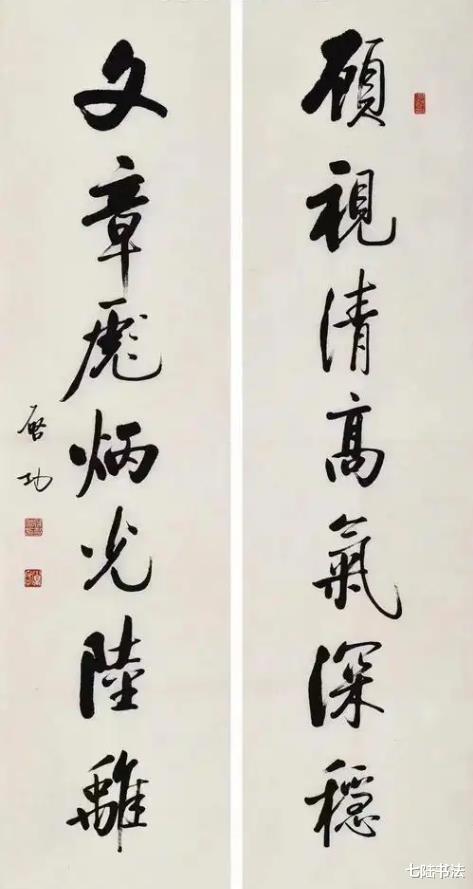 顧視清高氣深穩
文章彪炳光陸離
啓功
七陆书法